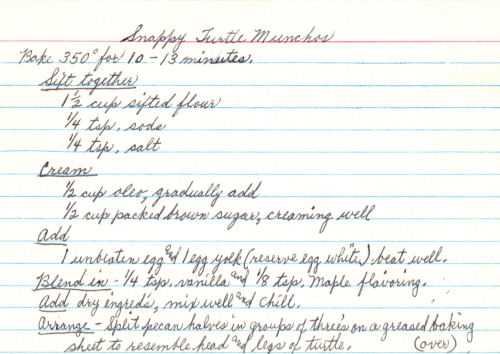 Snappy Turtle Munchos
Bake 350° for 10-13 minutes.
Sift together
1 1/2 cup sifted flour
1/4 tsp. soda
1/4 tsp. salt
Cream
1/2 cup oleo, gradually add
1/2 cup packed brown sugar, creaming well
Add
1 unbeaten egg and 1 egg yolk (reserve egg white) beat well.
Blend in - 1/4 tsp. vanilla and 1/8 tsp. Maple flavoring.
Add dry ingred's, mix well and chill.
Arrange - Split pecan halves in groups of three's on a greased baking
sheet to resemble head and legs of turtle. (over)